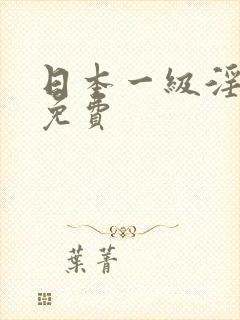 日本一級淫
免費
葉菁